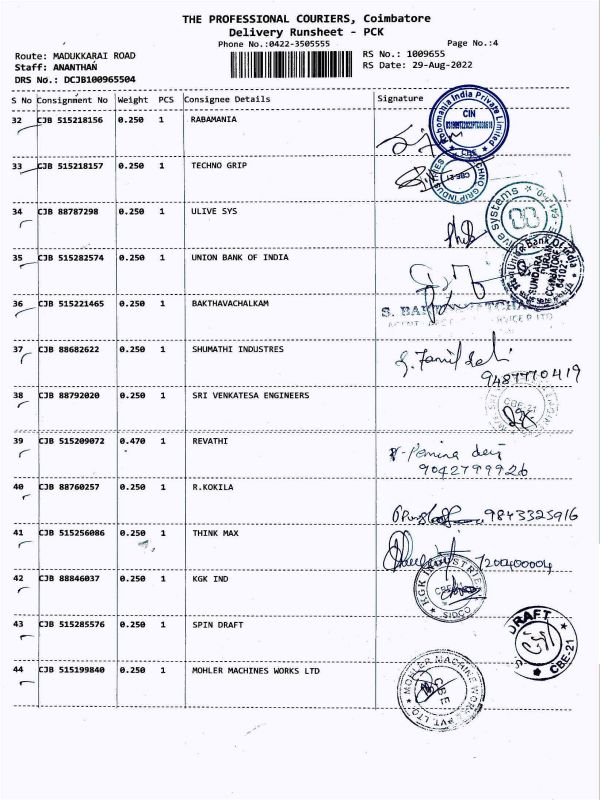 THE PROFESSIONAL COURIERS, Coimbatore
Delivery Runsheet - PCK
Phone No.:0422-3505555
Page No.:4
Route: MADUKKARAI ROAD
RS No.: 1009655
Staff: ANANTHAN
RS Date: 29-Aug-2022
DRS No.: DCJB100965504
S No Consignment No Weight PCS Consignee Details Signature
32 CJB 515218156 0.250 1 RABAMANIA
Robomania India Private Limited
CIN
CBE
33 CJB 515218157 0.250 1 TECHNO GRIP
TECHNO GRIP INDUSTRIES
CBE-21
34 CJB 88787298 0.250 1 ULIVE SYS
35 CJB 515282574 0.250 1 UNION BANK OF INDIA
Union Bank Of India
36 CJB 515221465 0.250 1 BAKTHAVACHALKAM
37 CJB 88682622 0.250 1 SHUMATHI INDUSTRES
9487770419
38 CJB 88792020 0.250 1 SRI VENKATESA ENGINEERS
CBE-21
39 CJB 515209072 0.470 1 REVATHI
9042799926
40 CJB 88760257 0.250 1 R.KOKILA
9843325916
41 CJB 515256086 0.250 1 THINK MAX
7200400004
42 CJB 88846037 0.250 1 KGK IND
KGK INDUSTRIES
SIDCO
43 CJB 515285576 0.250 1 SPIN DRAFT
DRAFT
CBE-21
44 CJB 515199840 0.250 1 MOHLER MACHINES WORKS LTD
MOHLER MACHINE WORKS PVT LTD
CBE